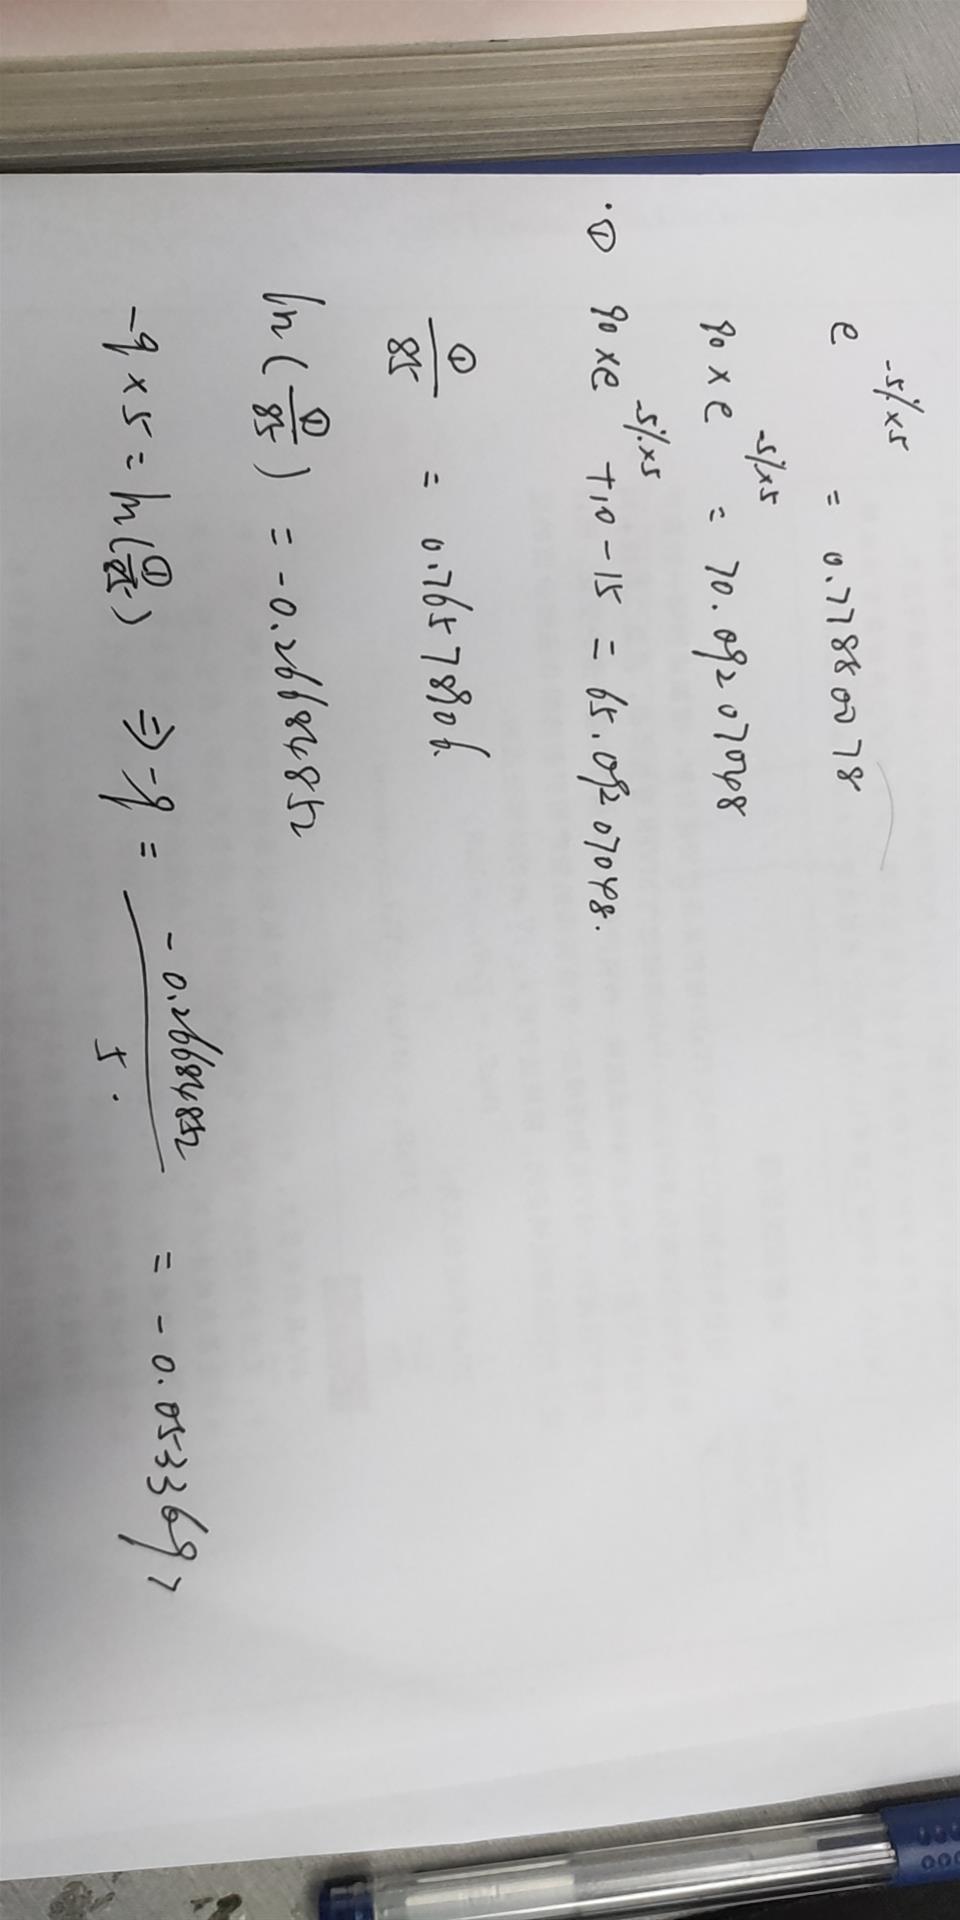 e^{-5%×5} = 0.77880078
90×e^{-5%×5} = 70.09207048
·① 90×e^{-5%×5} +10-15 = 65.09207048.
①/85 = 0.76578906
ln(①/85) = -0.26684852
-q×5 = ln(①/85) ⇒ -q = -0.26684852/5. = -0.0533697